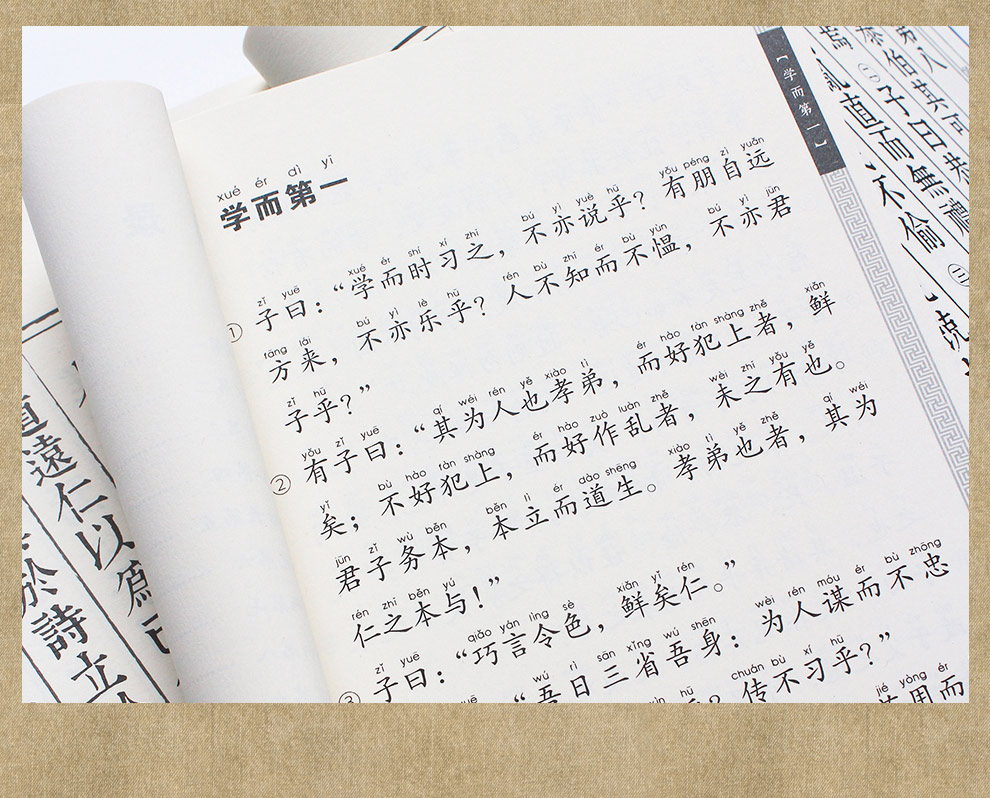 【学而第一】
xué ér dì yī
学而第一
zǐ yuē xué ér shí xí zhī bú yì yuè hū yǒu péng zì yuǎn
① 子曰：“学而时习之，不亦说乎？有朋自远
fāng lái bú yì lè hū rén bù zhī ér bù yùn bú yì jūn
方来，不亦乐乎？人不知而不愠，不亦君
zǐ hū
子乎？”
yǒu zǐ yuē qí wéi rén yě xiào tì ér hào fàn shàng zhě xiǎn
② 有子曰：“其为人也孝弟，而好犯上者，鲜
yǐ bù hào fàn shàng ér hào zuò luàn zhě wèi zhī yǒu yě
矣；不好犯上，而好作乱者，未之有也。
jūn zǐ wù běn běn lì ér dào shēng xiào tì yě zhě qí wéi
君子务本，本立而道生。孝弟也者，其为
rén zhī běn yú
仁之本与！”
zǐ yuē qiǎo yán lìng sè xiǎn yǐ rén
③ 子曰：“巧言令色，鲜矣仁。”
wú rì sān xǐng wú shēn wèi rén móu ér bù zhōng
“吾日三省吾身：为人谋而不忠
hū chuán bù xí hū
传不习乎？”
jié yòng ér
用而
子曰恭
直而無禮
不偷
道遠仁以爲
於詩立